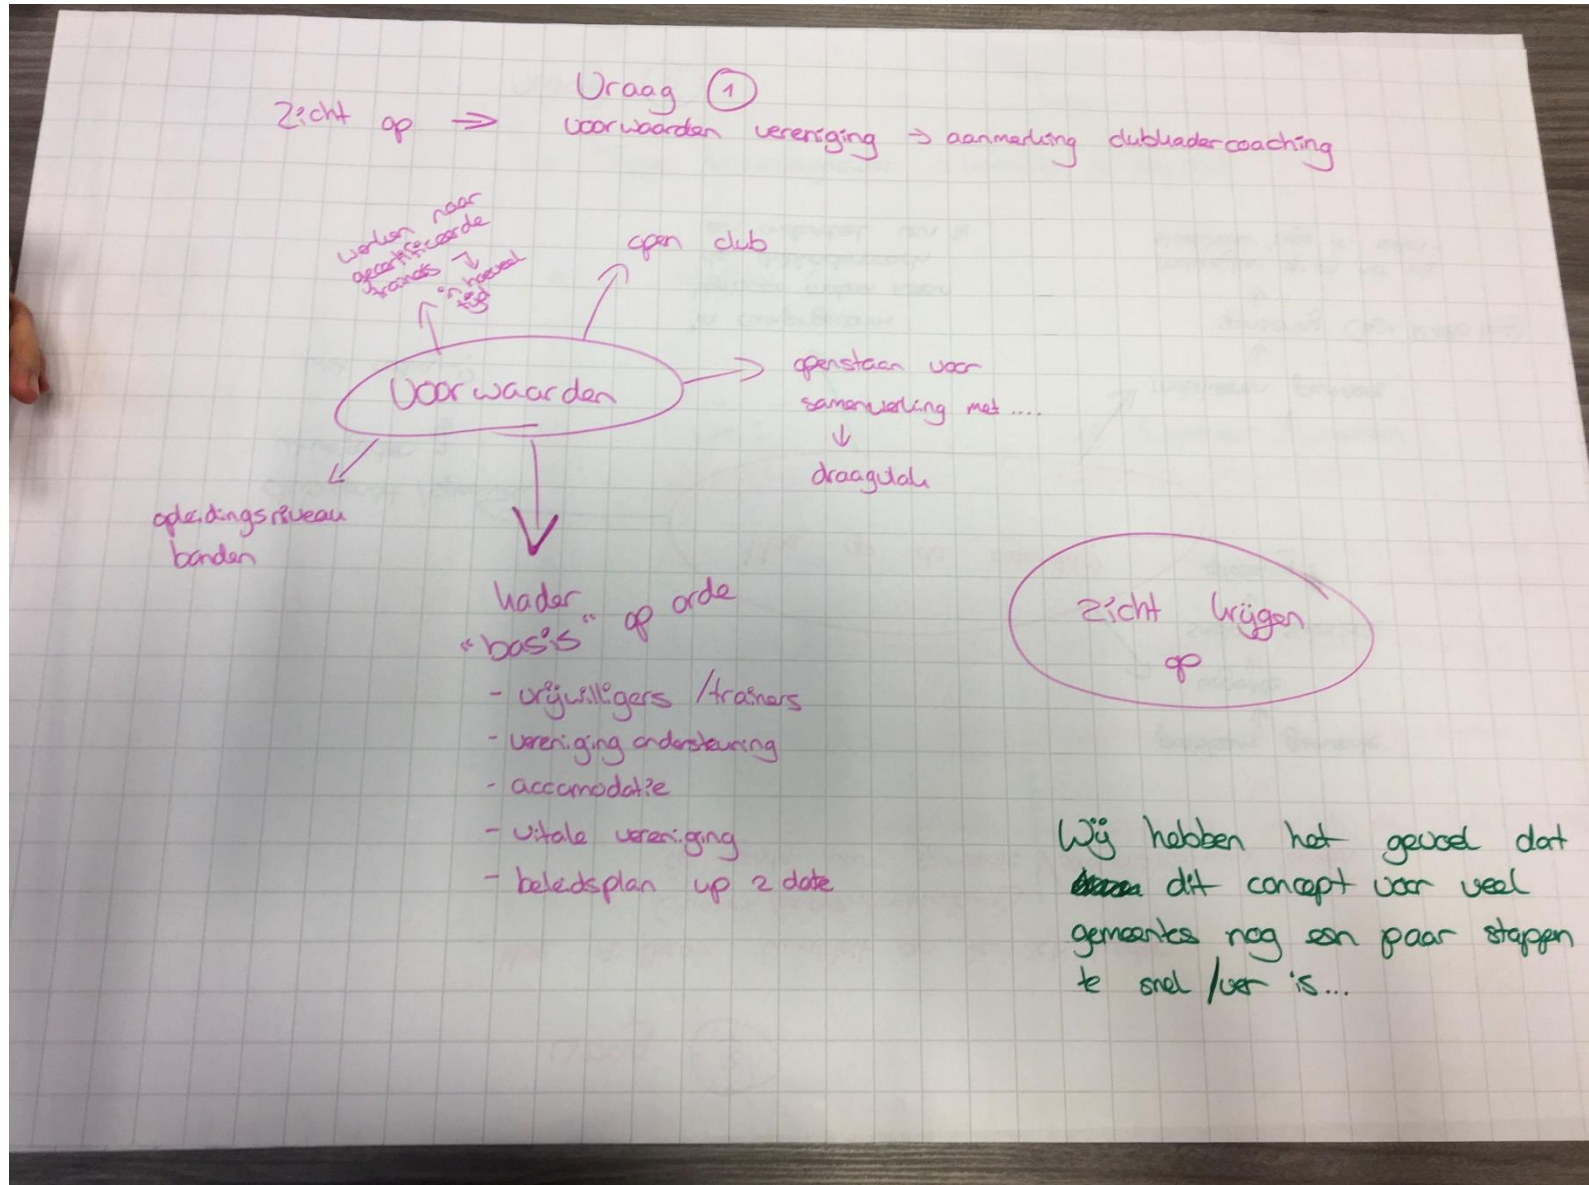 Vraag 1
Zicht op ⇒ voorwaarden vereniging → aanmerking clubkadercoaching
werken naar
gecertificeerde
trainers →
in hoeveel
tijd
open club
Voorwaarden
openstaan voor
samenwerking met ....
↓
draagvlak
opleidingsniveau
bonden
kader
"basis" op orde
- vrijwilligers /trainers
- vereniging ondersteuning
- accomodatie
- vitale vereniging
- beleidsplan up 2 date
zicht krijgen
op
Wij hebben het gevoel dat
dit concept voor veel
gemeentes nog een paar stappen
te snel /ver is...